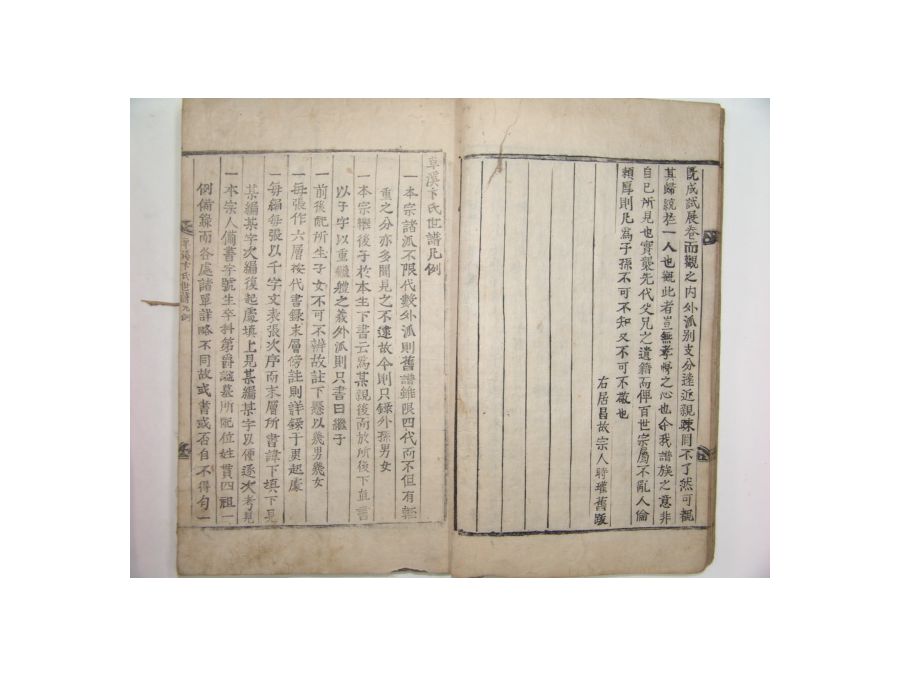 旣成試展卷而觀之內外派別支分遠近親踈罔不了然可覩
其歸統於一人也觀此者豈無孝悌之心也今我譜族之意非
自己所見也實襲先代父兄之遺籍而俾百世宗屬不亂人倫
頼厚則凡爲子孫不可不知又不可不敬也
右居昌故宗人時瓘舊跋
草溪卞氏世譜凡例
一本宗諸派不限代數外派則舊譜雖限四代而不但有輕
重之分亦多聞見之不逮故今則只錄外孫男女
一本宗繼後子於本生下書云爲某親後而於所後下直書
以子字以重繼體之義外派則只書曰繼子
一前後配所生子女不可不辨故註下懸以幾男幾女
一每張作六層按代書錄末層傍註則詳錄于更起處
一每編每張以千字文表張次序而末層所書諱下填下見
某編某字次編復起處填上見某編某字以便逐次考見
一本宗人備書字號生卒科第爵諡墓所配位姓貫四祖一
例備錄而各處諸單詳略不同故或書或否自不得句一
草溪卞氏世譜凡例